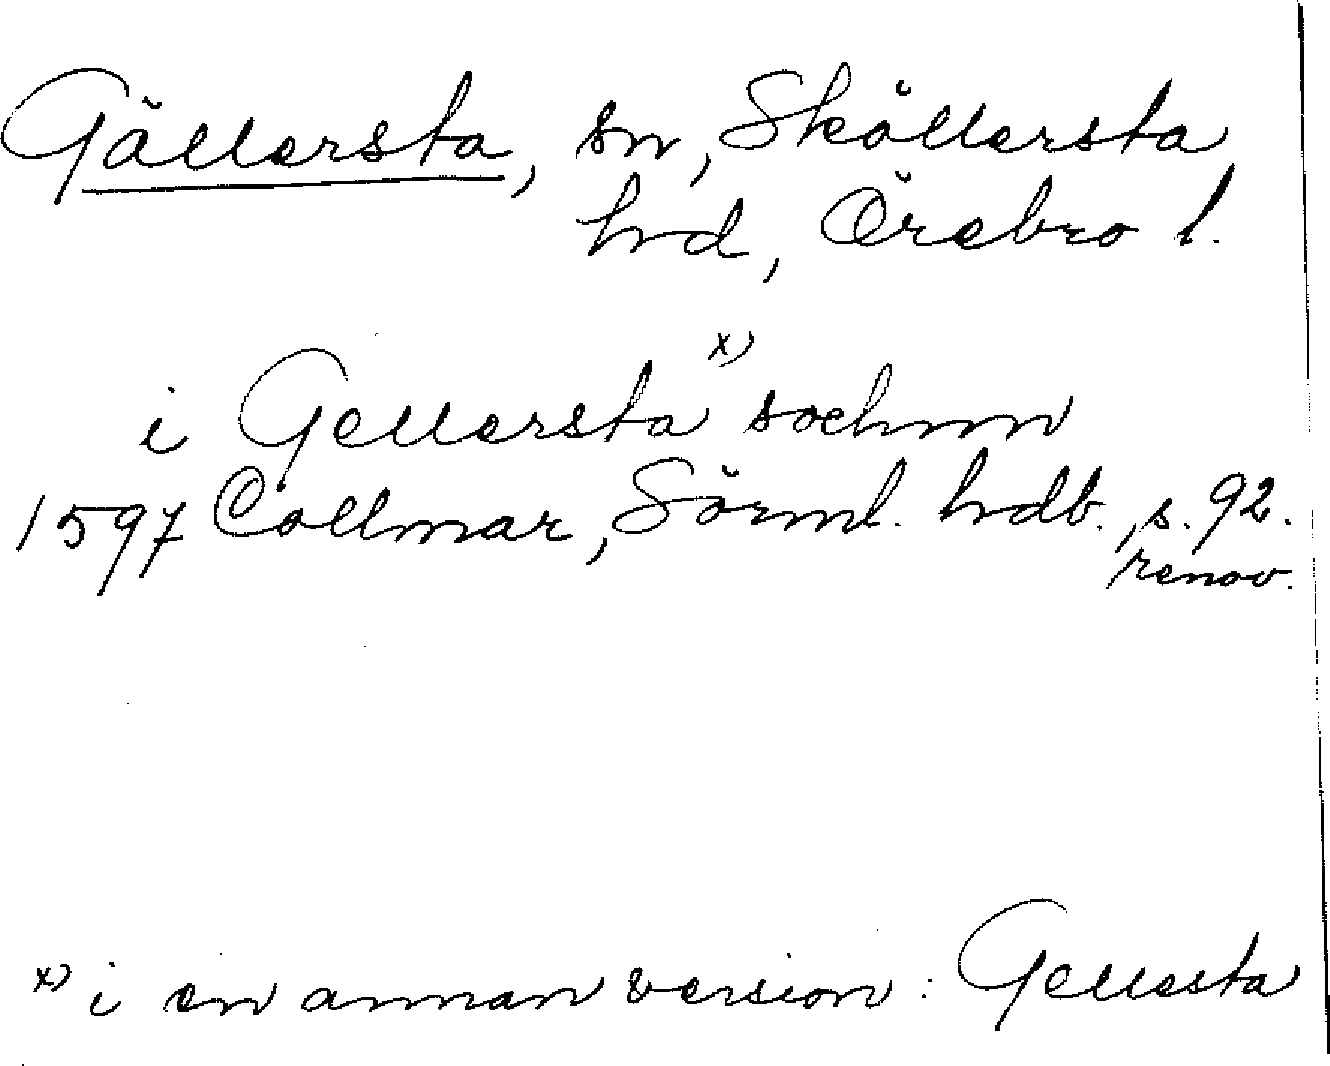 Gällersta, sn, Sköllersta
hd, Örebro l.
i Gellersta x) sochnn
1597 Collmar, Sörml. hdb., s. 92.
renov.
x) i en annan version: Gellesta